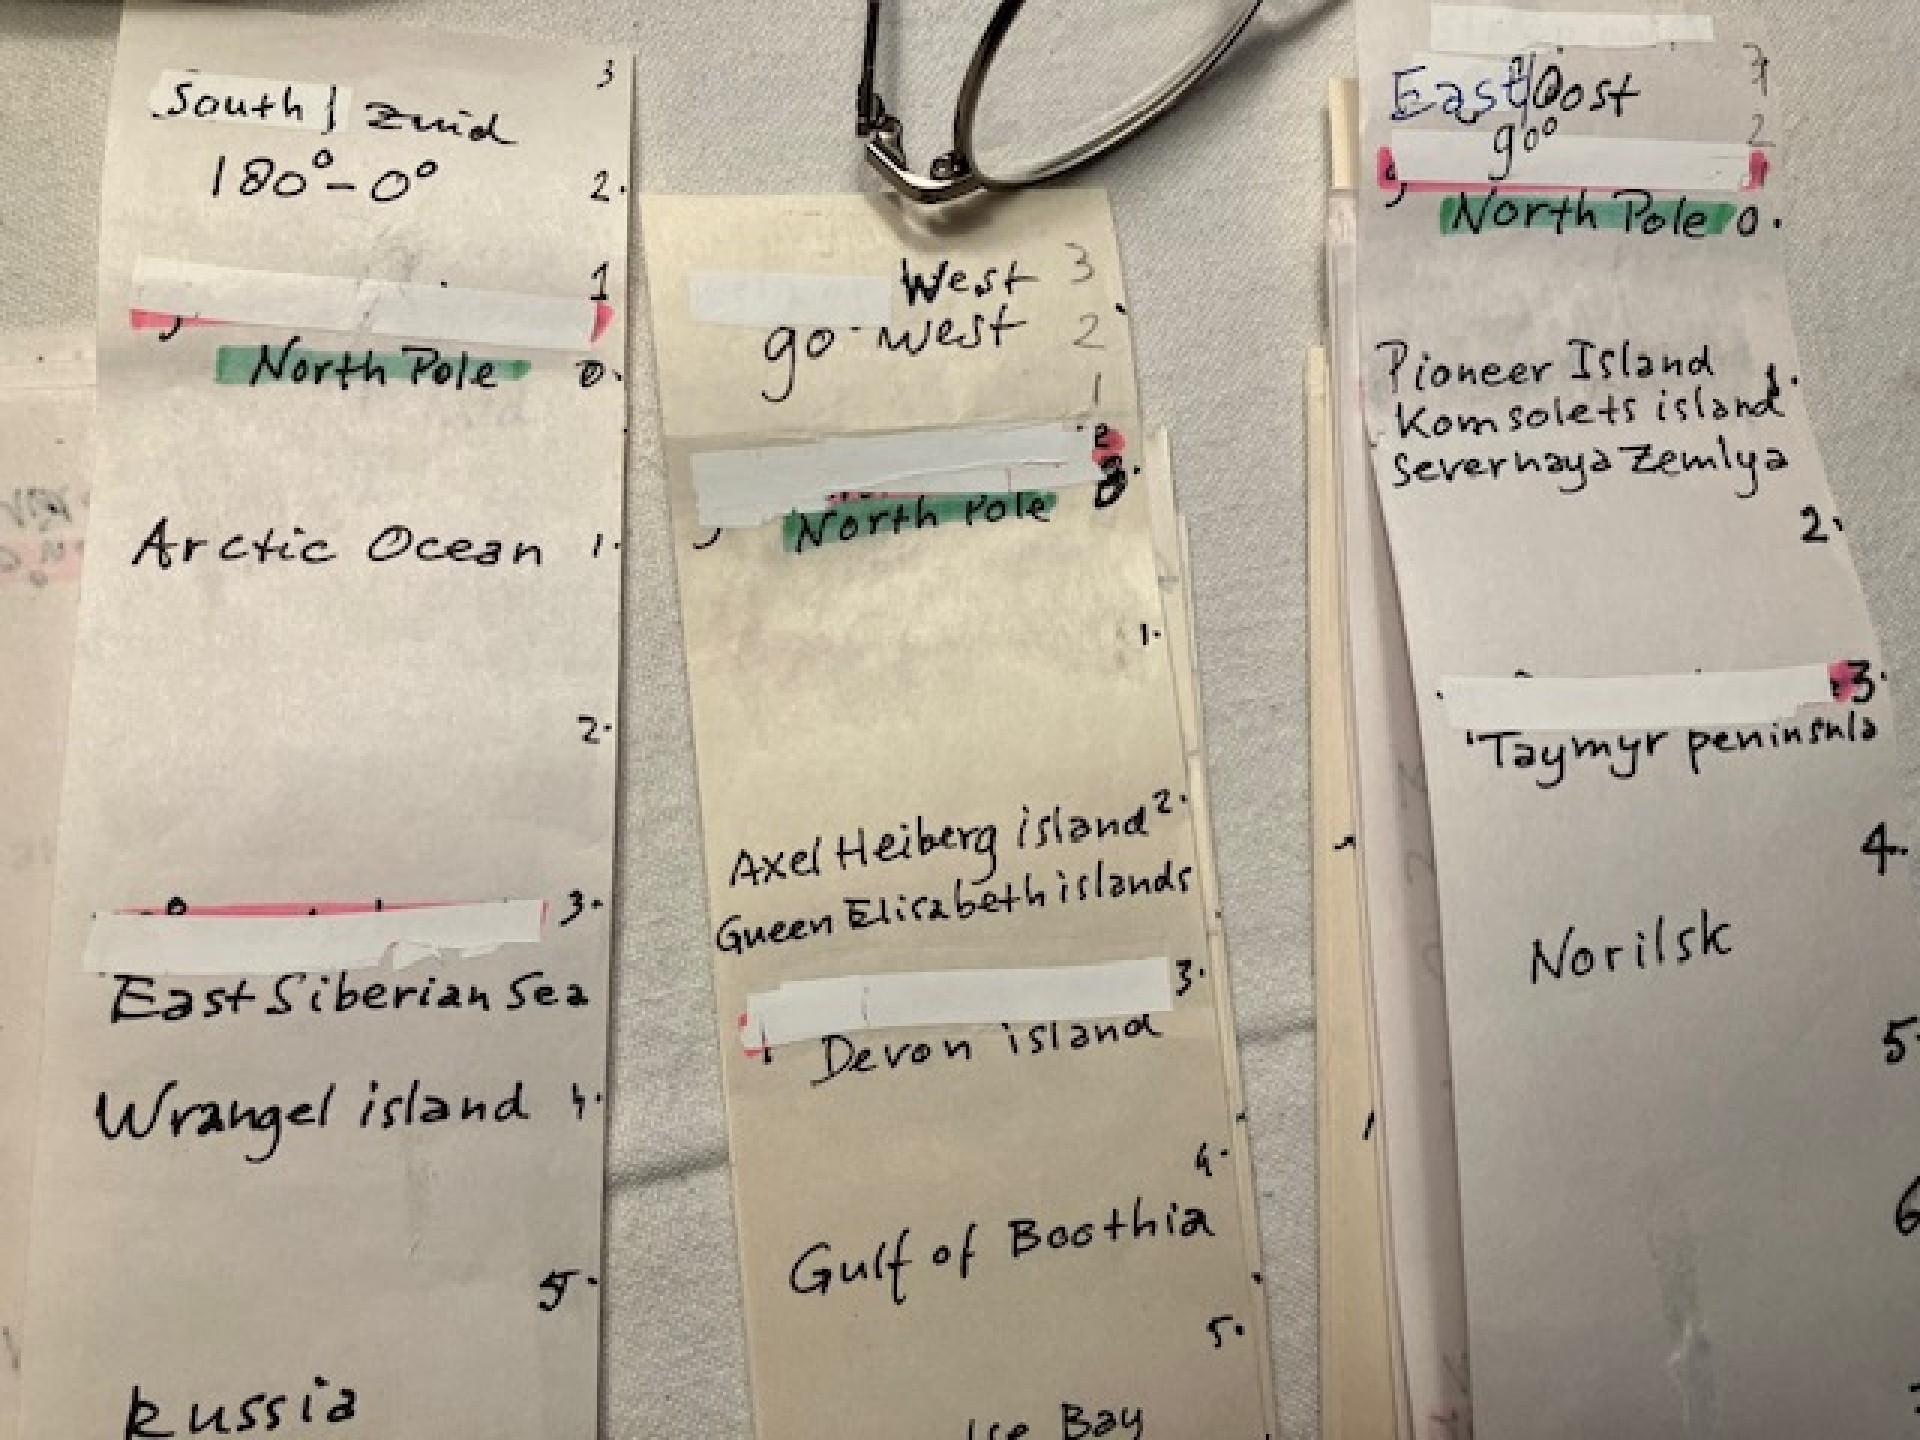 South | Zuid 3
180°-0° 2.
1
North Pole 0.
Arctic Ocean 1.
2.
3.
East Siberian Sea
Wrangel island 4.
5.
Russia
West 3
90 - West 2
1
North Pole 0
1.
2.
Axel Heiberg island
Gueen Elisabeth islands
3.
Devon island
4.
Gulf of Boothia
5.
Bay
East/Oost
90° 2
North Pole 0.
Pioneer Island 1.
Komsolets island
Severnaya Zemlya
2.
3.
Taymyr peninsula
4.
Norilsk
5.
6